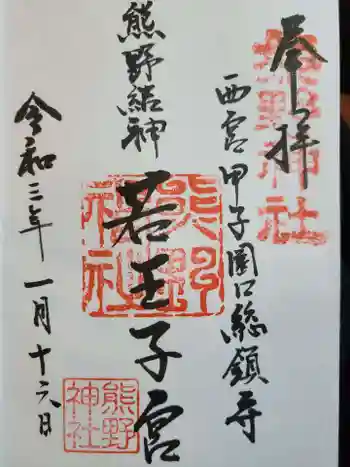 奉拝
熊野神社
西宮甲子園口総鎮守
若王子宮
熊野神社
熊野結神
熊野神社
令和三年一月十六日